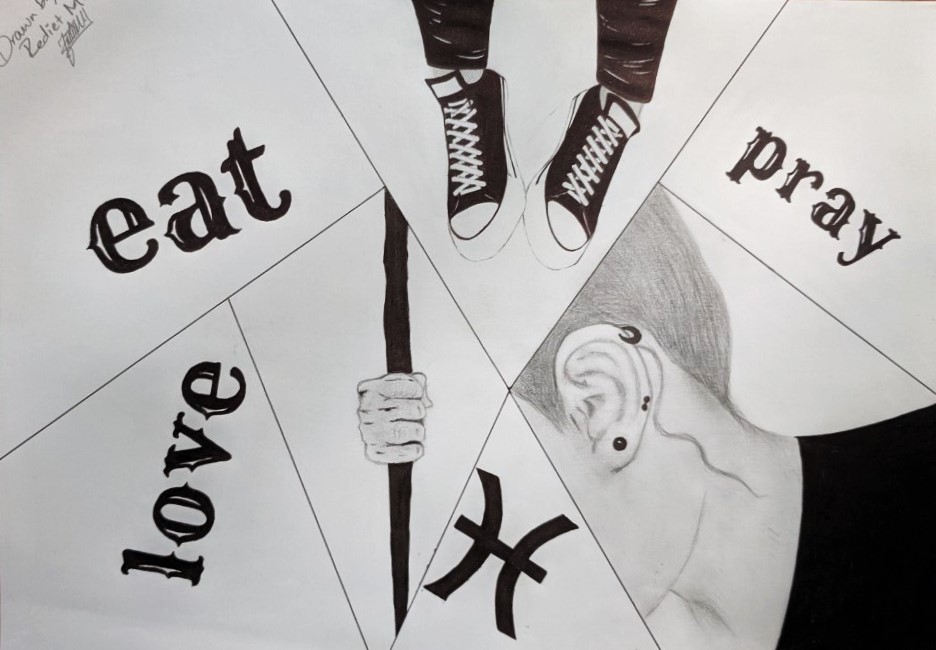 Drawn by
Rediet M
eat
pray
love